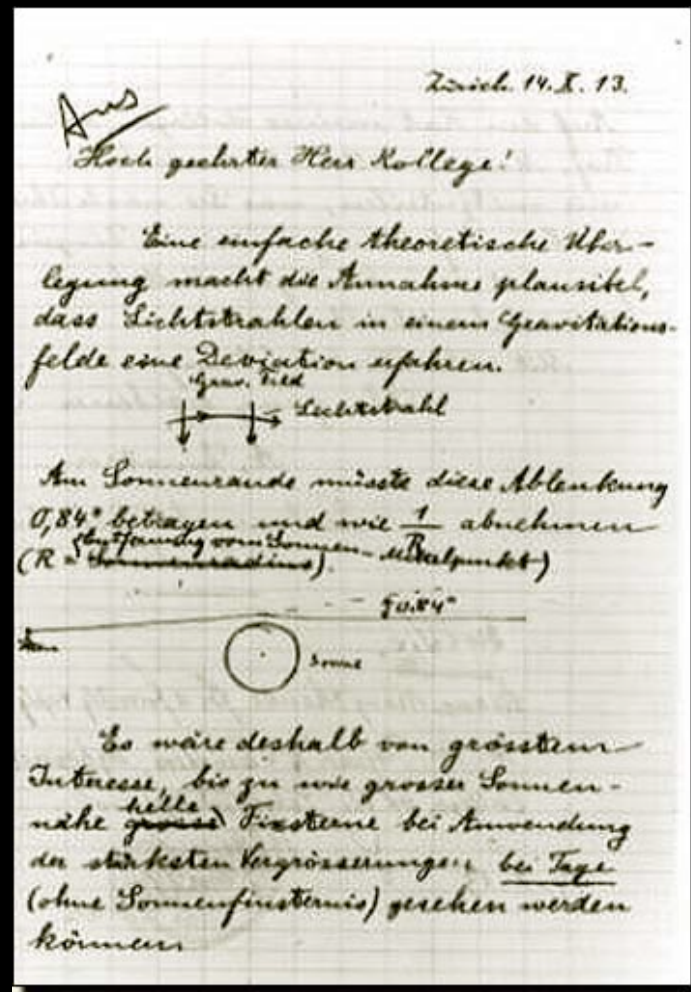 Zürich. 14. X. 13.
Aus
Hoch geehrter Herr Kollege!
Eine einfache theoretische Über-
legung macht die Annahme plausibel,
dass Lichtstrahlen in einem Gravitations-
felde eine Deviation erfahren.
Grav. Feld
Lichtstrahl
Am Sonnenrande müsste diese Ablenkung
0,84" betragen und wie 1/R abnehmen
Entfernung vom Sonnen-Mittelpunkt)
(R = Sonnenradius)
0.84"
Sonne
Es wäre deshalb von grösstem
Interesse, bis zu wie grosser Sonnen-
nähe helle
grosse Fixsterne bei Anwendung
der stärksten Vergrösserungen bei Tage
(ohne Sonnenfinsternis) gesehen werden
können.